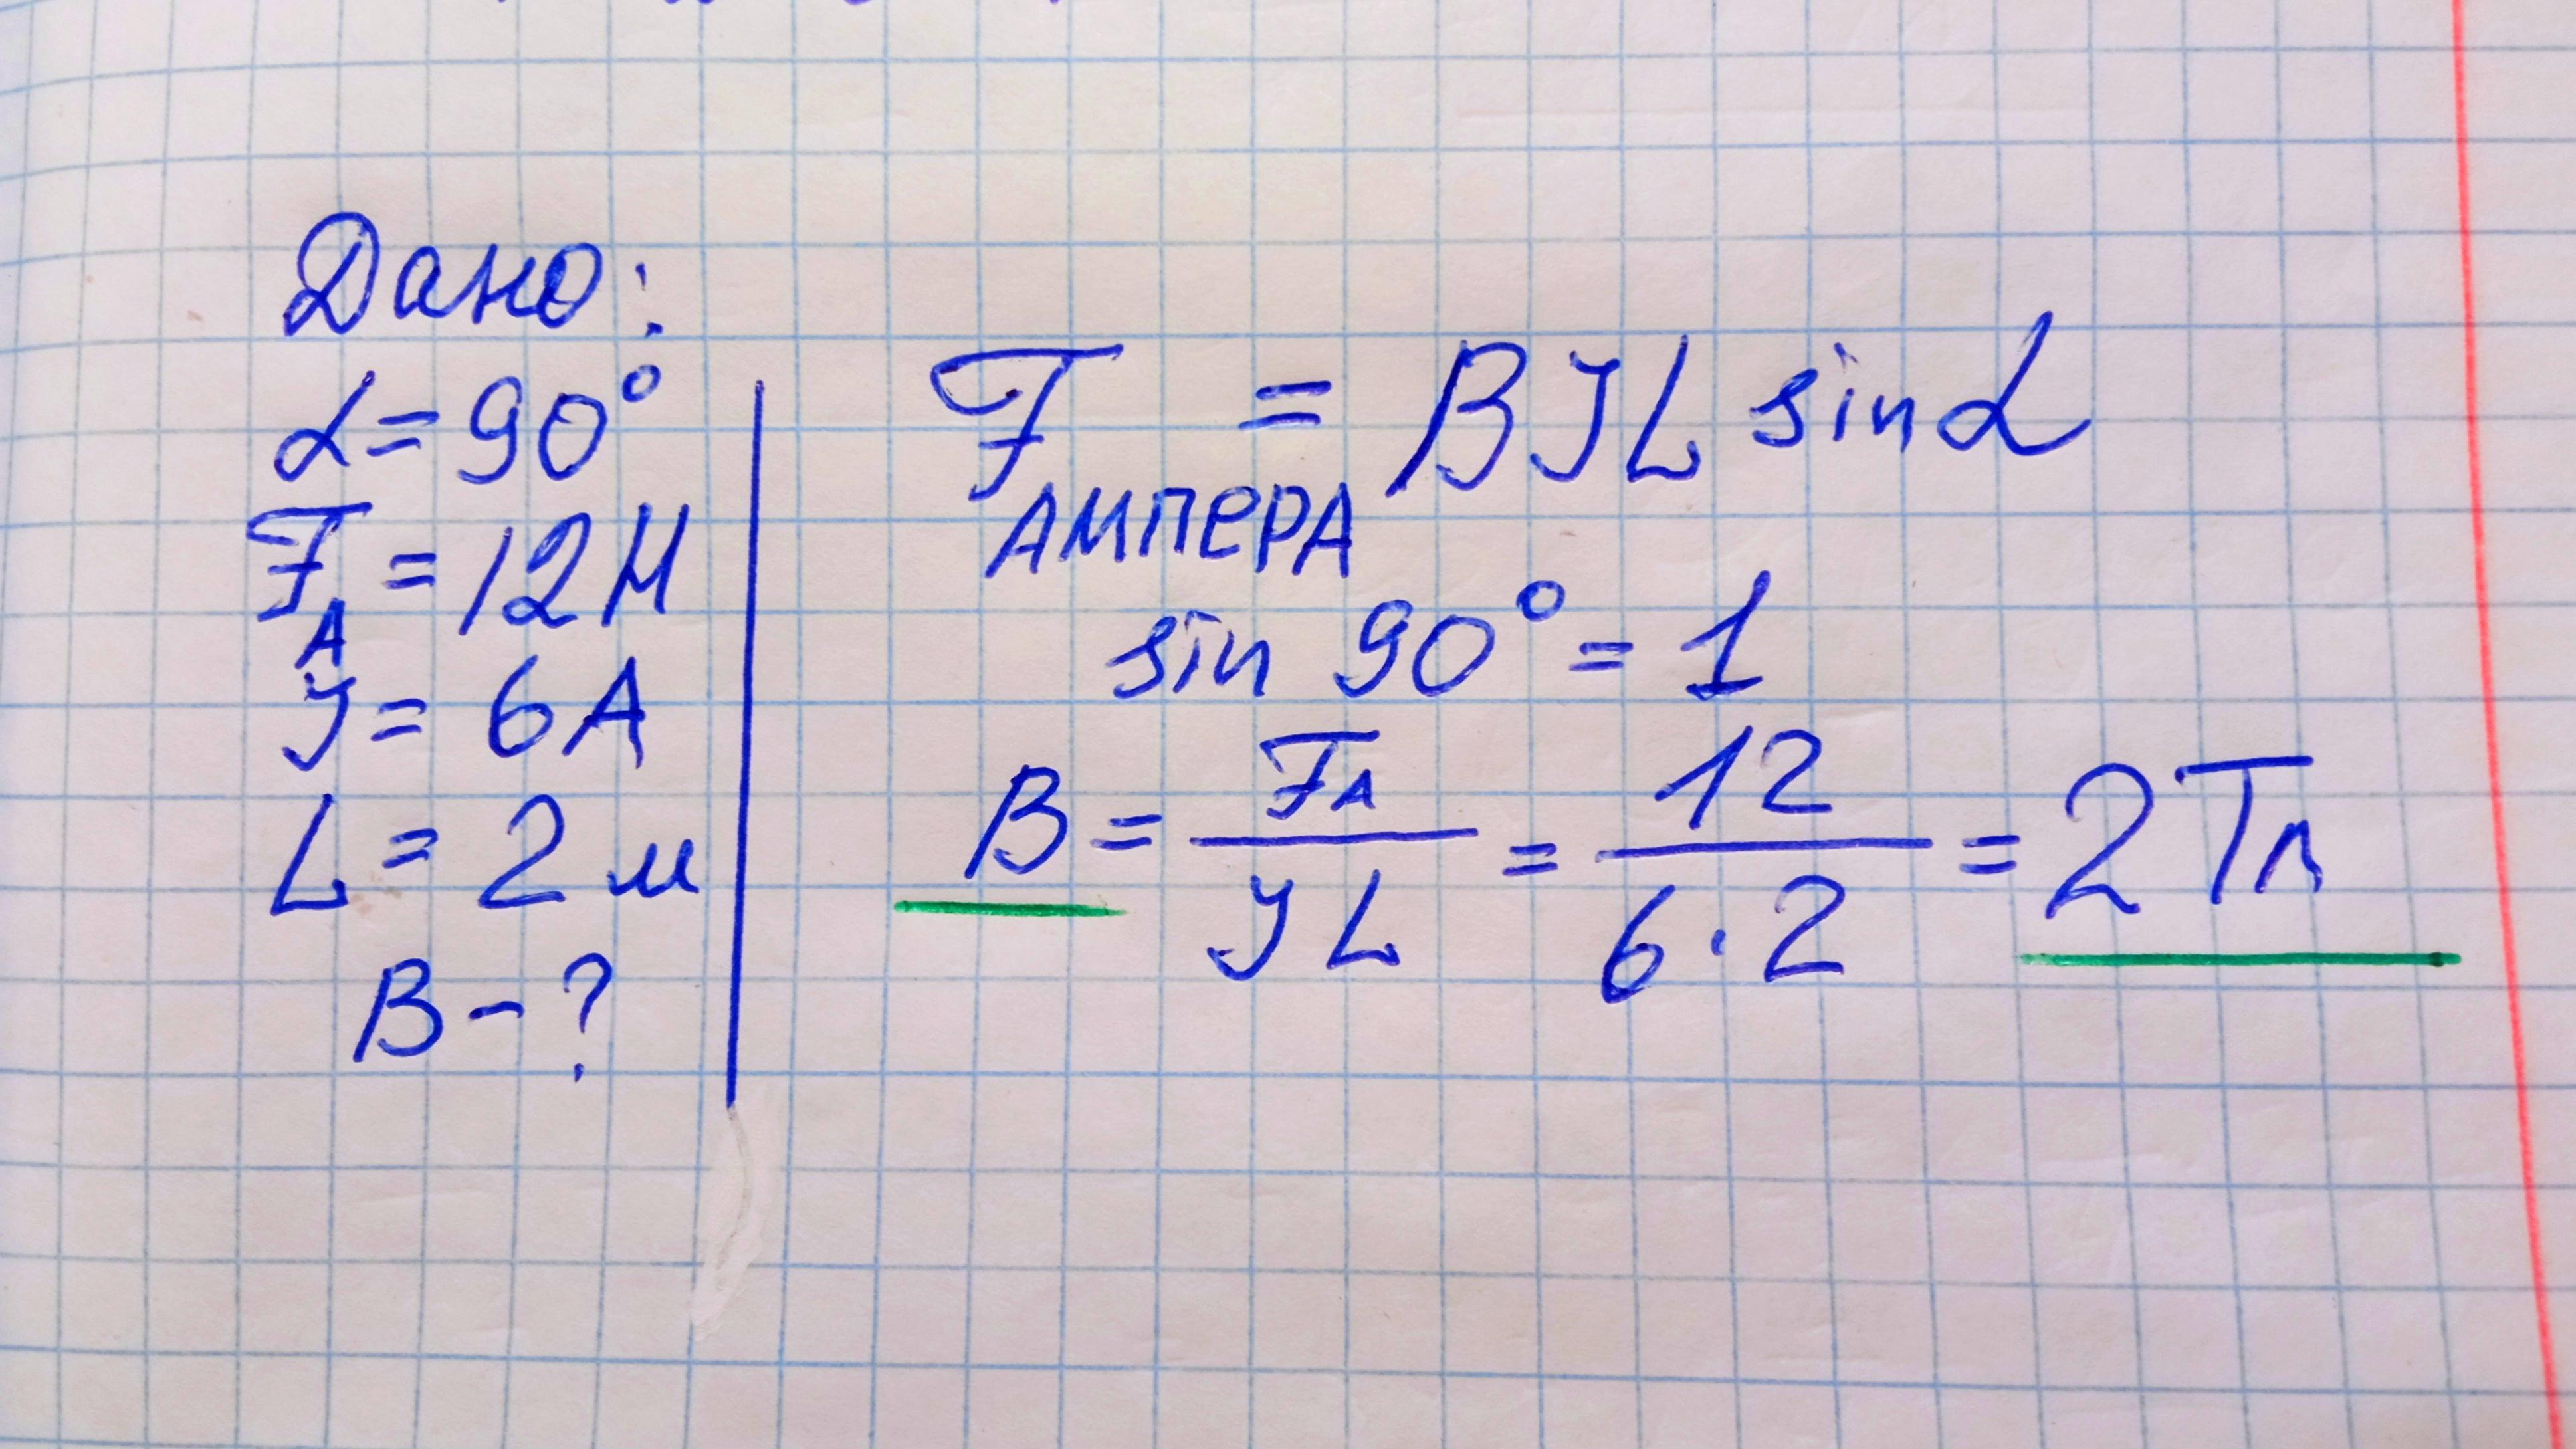 Дано:
α = 90°
F_A = 12 Н
J = 6 А
L = 2 м
B - ?
F_АМПЕРА = BJL sin α
sin 90° = 1
B = F_A / JL = 12 / 6·2 = 2 Тл